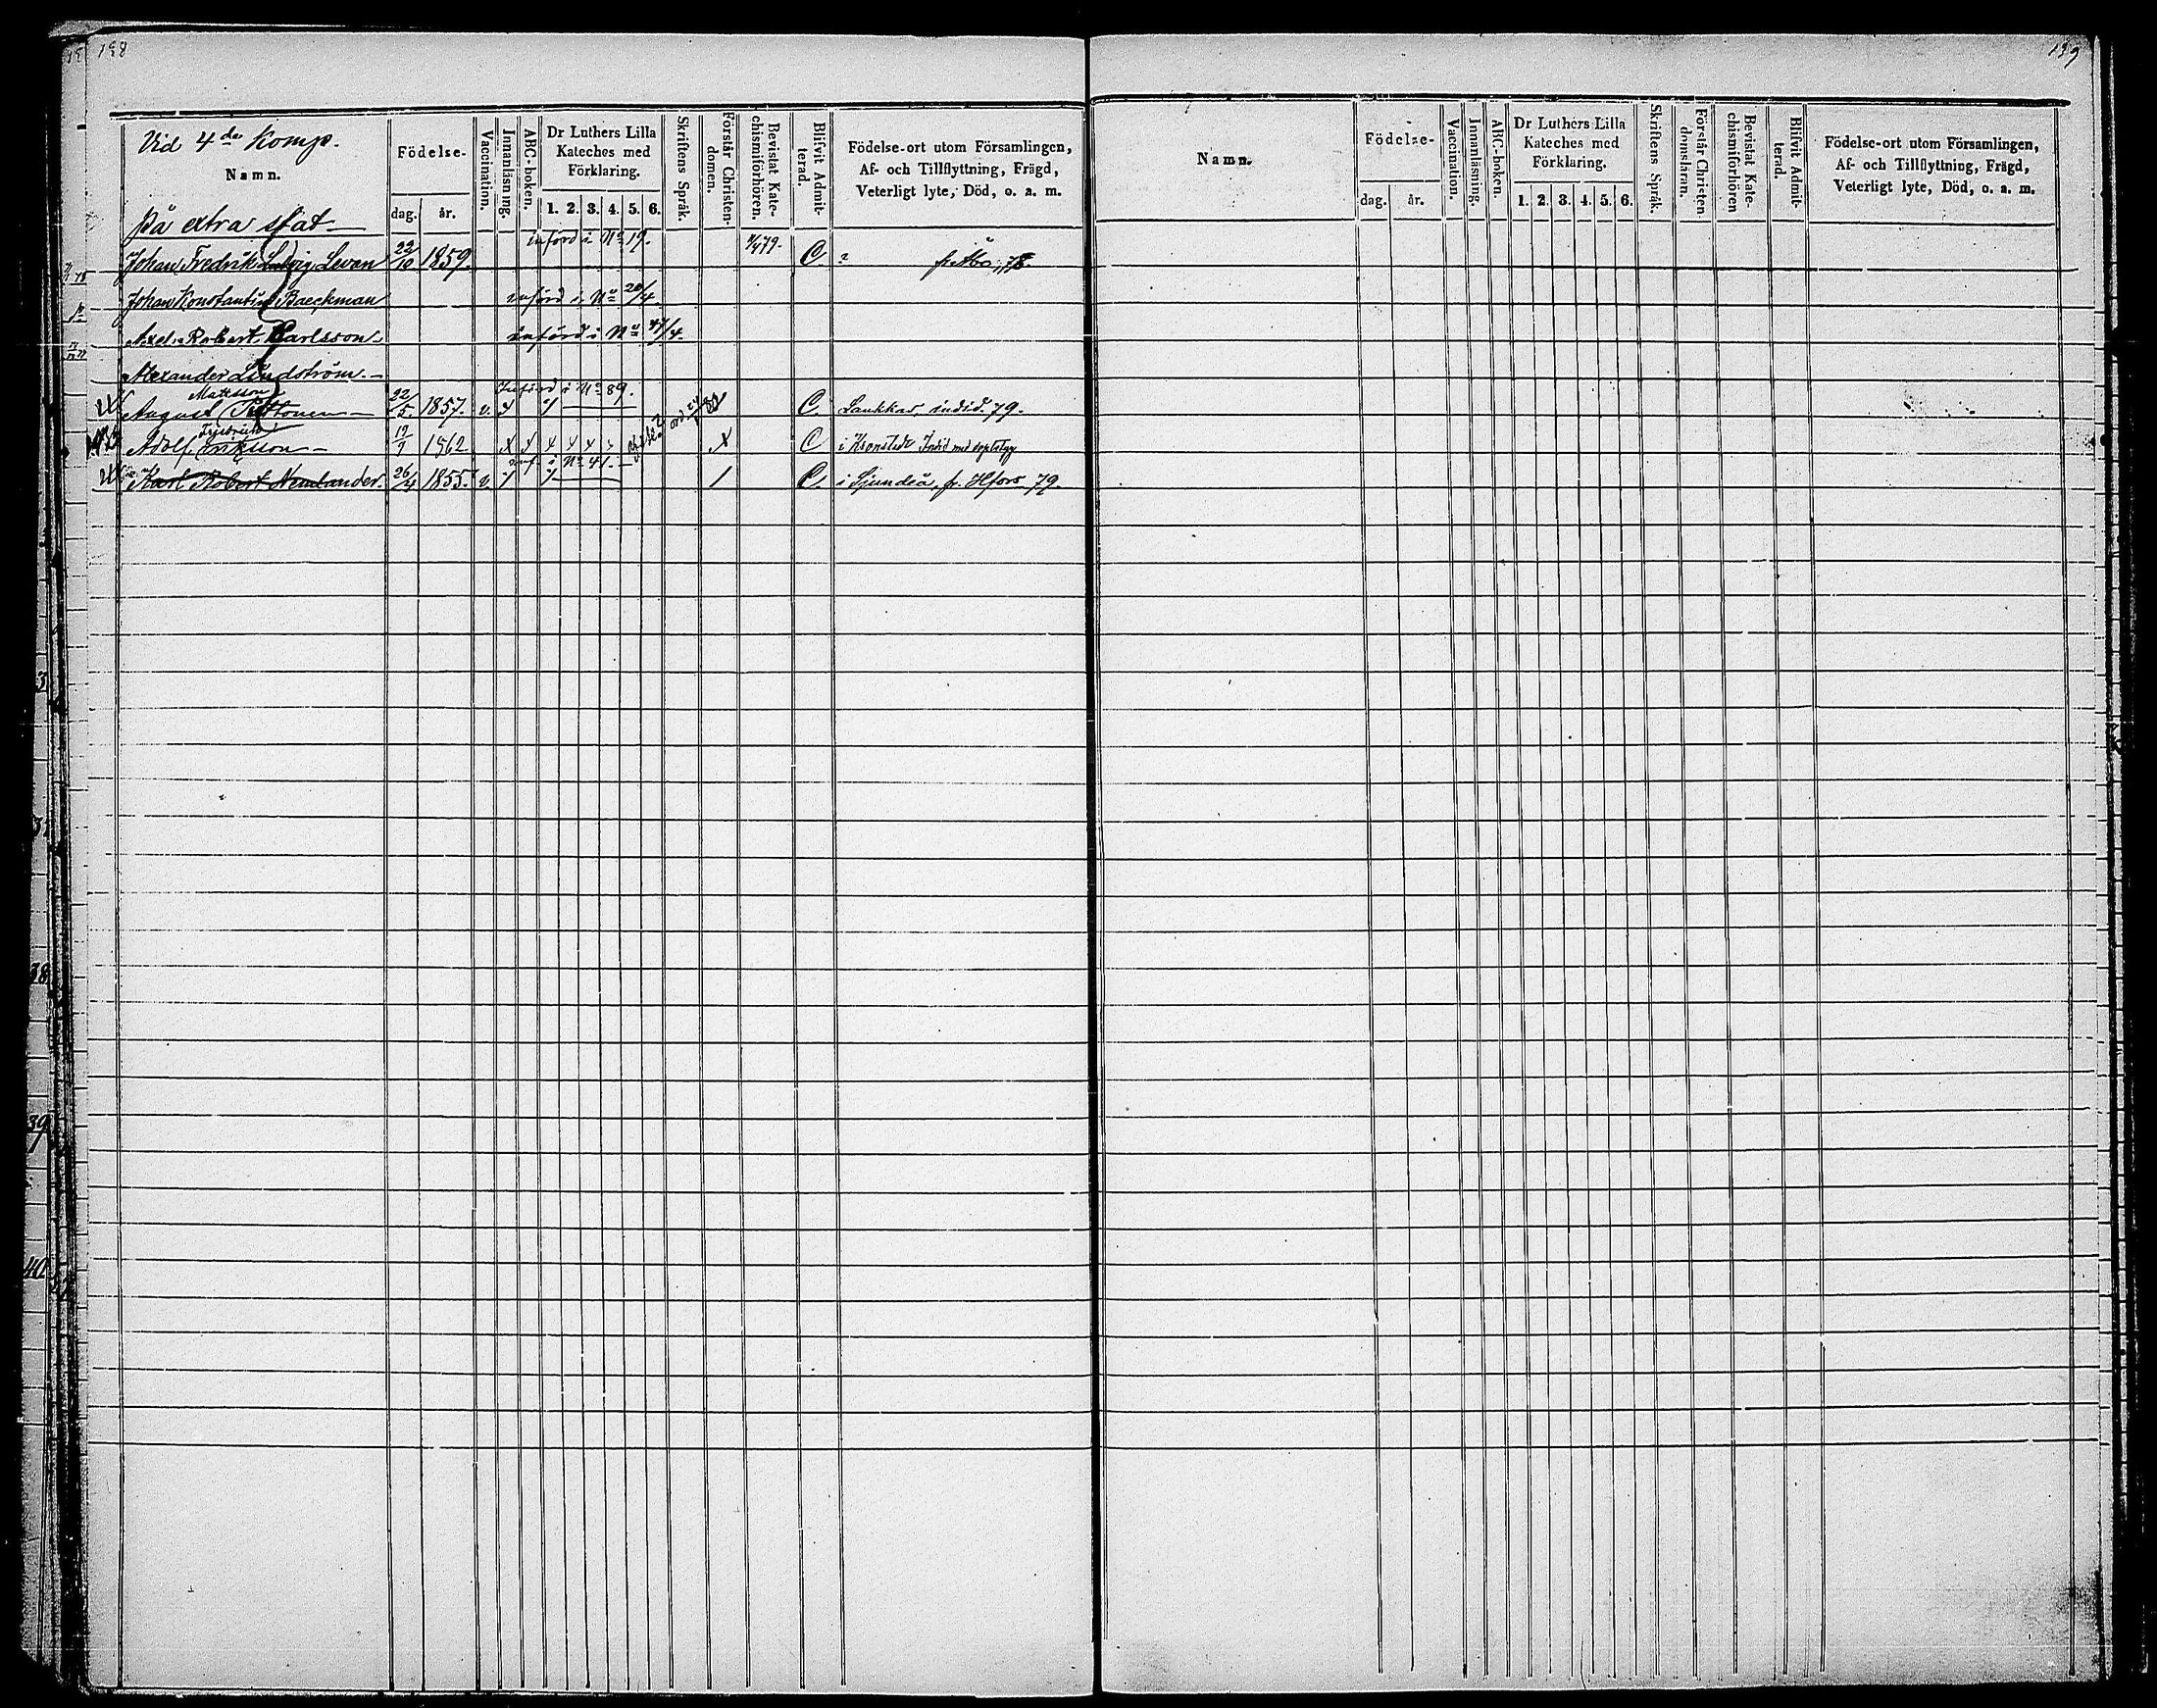 158
159
Vid 4de Komp.
Namn.
Födelse-
dag.
år.
Vaccination.
Innanläsning.
ABC-boken.
Dr Luthers Lilla
Kateches med
Förklaring.
1. 2. 3. 4. 5. 6.
Skriftens Språk.
Förstår Christen-
domen.
Bevistat Kate-
chismiförhören.
Blifvit Admit-
terad.
Födelse-ort utom Församlingen,
Af- och Tillflyttning, Frägd,
Veterligt lyte, Död, o. a. m.
På extra stat
Införd i No 19.
Johan Fredrik Ludvig Levan 22/10 1859. C. ? fr. Åbo 78.
Johan Konstantin Baeckman införd i No 20/4
Axel Robert Karlsson införd i No 47/4.
Alexander Lindström.
Mattsson Införd i No 89.
August 22/5. 1857. v. C. 79.
Adolf Eriksson 19/9 1862 C i
inf. i No 41.
Karl Robert Nemlander. 26/4 1855. v. C. i Sjundeå, fr. Hfors 79.
Namn.
Födelse-
dag.
år.
Vaccination.
Innanläsning.
ABC-boken.
Dr Luthers Lilla
Kateches med
Förklaring.
1. 2. 3. 4. 5. 6.
Skriftens Språk.
Förstår Christen-
domsläran.
Bevistat Kate-
chismiförhören
Blifvit Admit-
terad.
Födelse-ort utom Församlingen,
Af- och Tillflyttning, Frägd,
Veterligt lyte, Död, o. a. m.
38
39
40